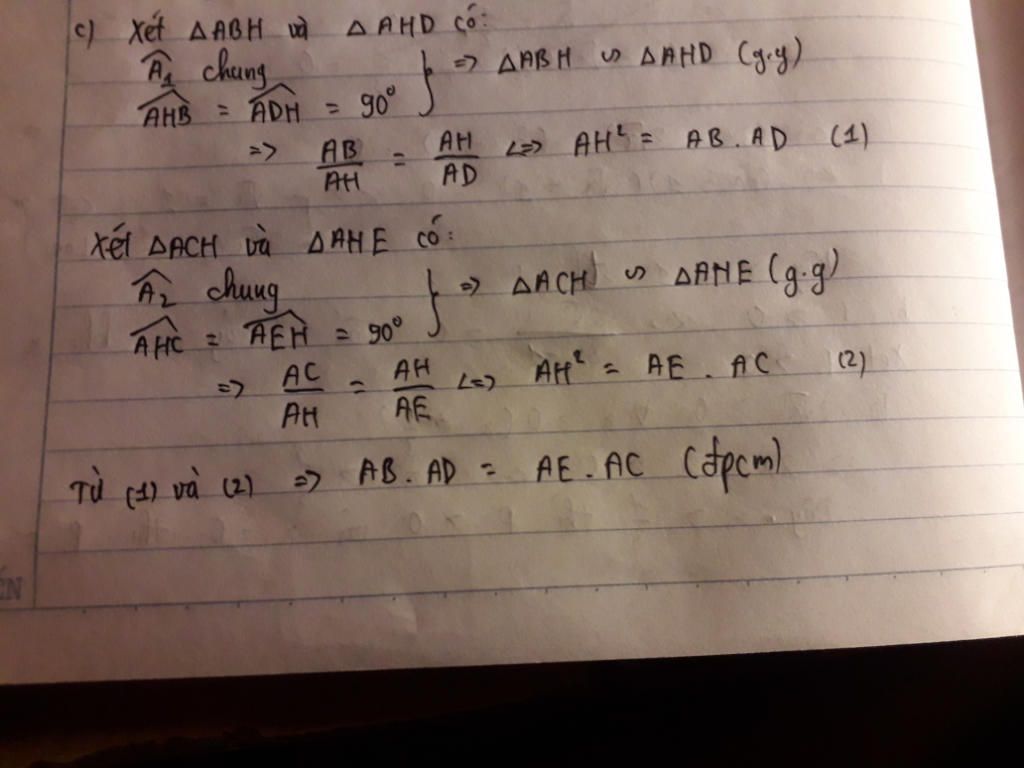 c) Xét △ABH và △AHD có:
Â₁ chung
$\widehat{AHB}$ = $\widehat{ADH}$ = 90° } => △ABH ∽ △AHD (g.g)
=> $\frac{AB}{AH}$ = $\frac{AH}{AD}$ <=> AH² = AB . AD (1)
Xét △ACH và △AHE có:
Â₂ chung
$\widehat{AHC}$ = $\widehat{AEH}$ = 90° } => △ACH ∽ △AHE (g.g)
=> $\frac{AC}{AH}$ = $\frac{AH}{AE}$ <=> AH² = AE . AC (2)
Từ (1) và (2) => AB . AD = AE . AC (đpcm)